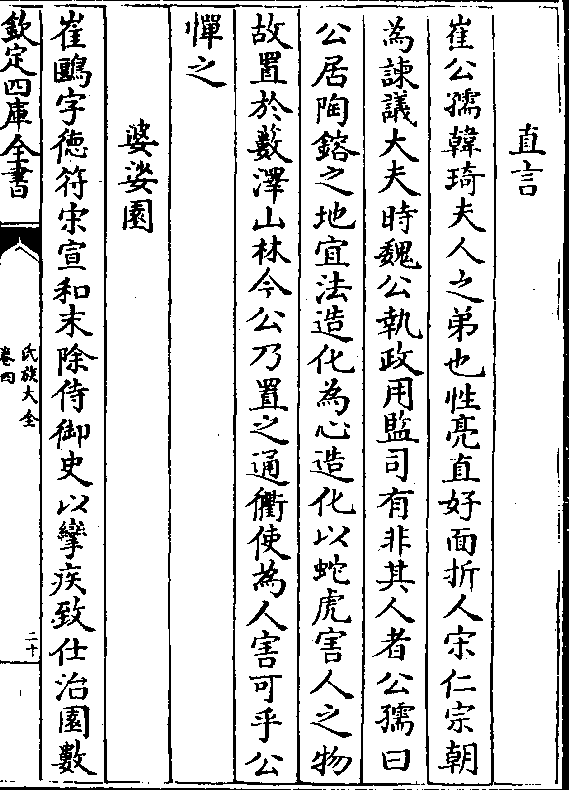 直言
崔公孺韓琦夫人之弟也性亮直好面折人宋仁宗朝
為諫議大夫時魏公執政用監司有非其人者公孺曰
公居陶鎔之地宜法造化為心造化以蛇虎害人之物
故置於藪澤山林今公乃置之通衢使為人害可乎公
憚之
婆娑園
崔鷗字徳符宋宣和末除侍御史以攣疾致仕治園數
欽定四庫全書
氏族大全
卷四
二十